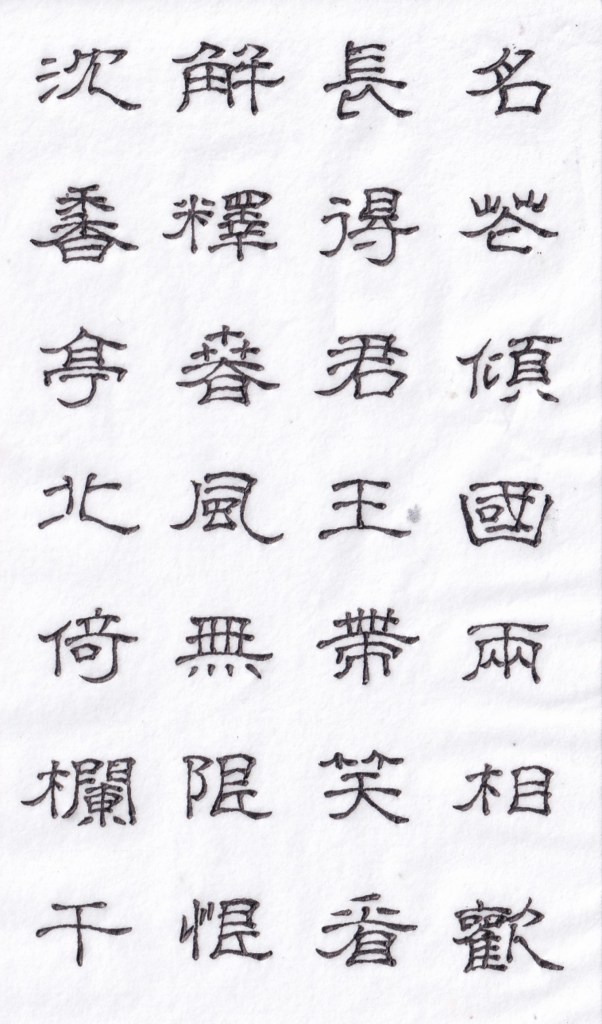 名花傾國兩相歡
長得君王帶笑看
解釋春風無限恨
沈香亭北倚欄干